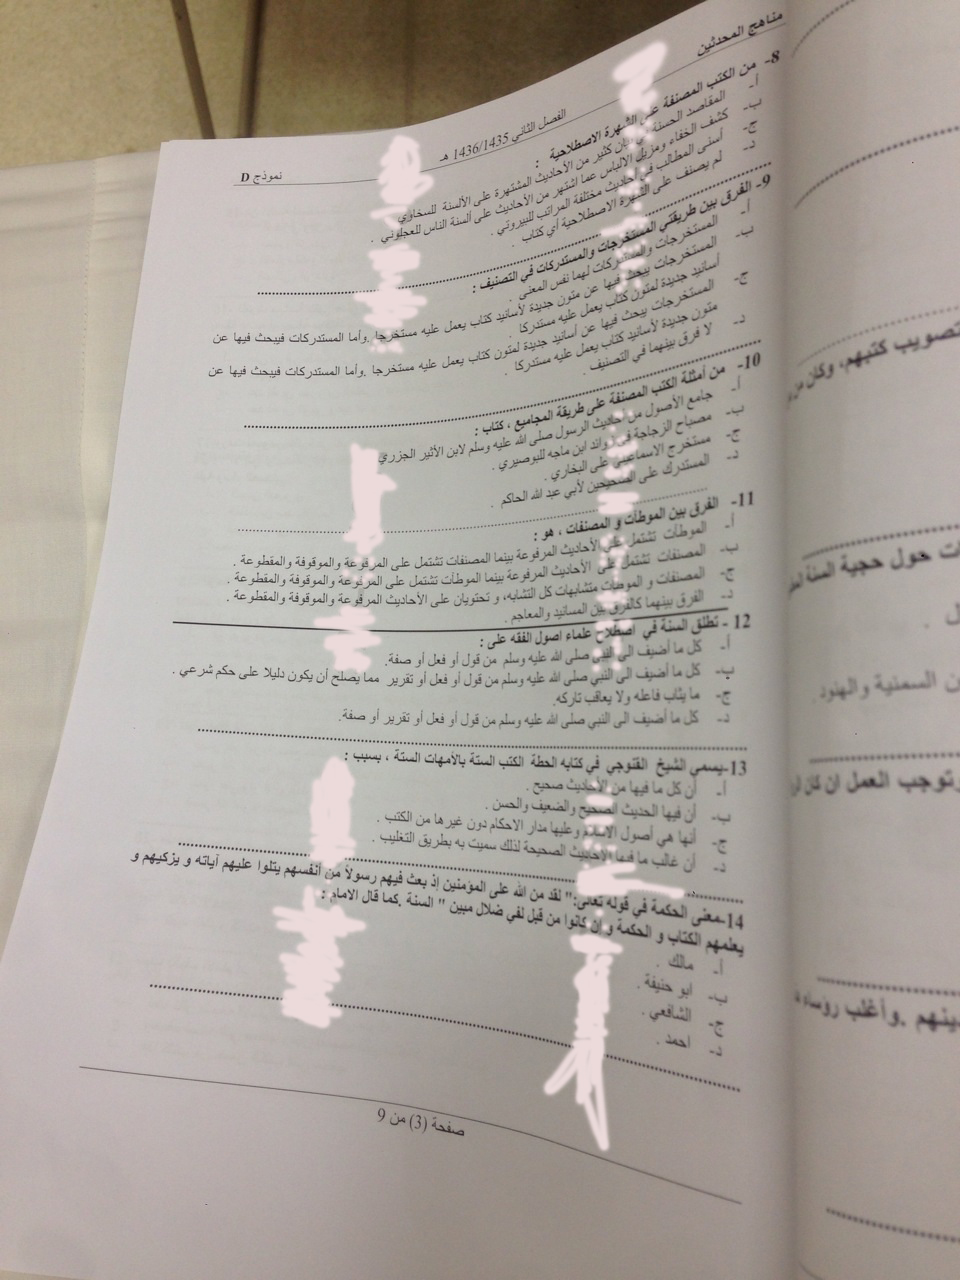 مناهج المحدثين
الفصل الثاني 1436/1435 هـ
نموذج D
8- من الكتب المصنفة على الشهرة الاصطلاحية :
أ- المقاصد الحسنة في بيان كثير من الأحاديث المشتهرة على الألسنة للسخاوي
ب- كشف الخفاء ومزيل الالباس عما اشتهر من الأحاديث على ألسنة الناس للعجلوني .
ج- أسنى المطالب في أحاديث مختلفة المراتب للبيروتي .
د- لم يصنف على الشهرة الاصطلاحية أي كتاب .
9- الفرق بين طريقتي المستخرجات والمستدركات في التصنيف :
أ- المستخرجات والمستدركات لهما نفس المعنى .
ب- المستخرجات يبحث فيها عن متون جديدة لأسانيد كتاب يعمل عليه مستخرجا .وأما المستدركات فيبحث فيها عن
أسانيد جديدة لمتون كتاب يعمل عليه مستدركا .
ج- المستخرجات يبحث فيها عن أسانيد جديدة لمتون كتاب يعمل عليه مستخرجا .وأما المستدركات فيبحث فيها عن
متون جديدة لأسانيد كتاب يعمل عليه مستدركا .
د- لا فرق بينهما في التصنيف .
10- من أمثلة الكتب المصنفة على طريقة المجاميع ، كتاب :
أ- جامع الأصول من أحاديث الرسول صلى الله عليه وسلم لابن الأثير الجزري
ب- مصباح الزجاجة في زوائد ابن ماجه للبوصيري .
ج- مستخرج الاسماعيلي على البخاري .
د- المستدرك على الصحيحين لأبي عبد الله الحاكم .
11- الفرق بين الموطآت و المصنفات ، هو :
أ- الموطآت تشتمل على الأحاديث المرفوعة بينما المصنفات تشتمل على المرفوعة والموقوفة والمقطوعة .
ب- المصنفات تشتمل على الأحاديث المرفوعة بينما الموطآت تشتمل على المرفوعة والموقوفة والمقطوعة .
ج- المصنفات و الموطآت متشابهات كل التشابه، و تحتويان على الأحاديث المرفوعة والموقوفة والمقطوعة .
د- الفرق بينهما كالفرق بين المسانيد والمعاجم .
12 - تطلق السنة في اصطلاح علماء اصول الفقه على :
أ- كل ما أضيف الى النبي صلى الله عليه وسلم من قول أو فعل أو صفة.
ب- كل ما أضيف الى النبي صلى الله عليه وسلم من قول أو فعل أو تقرير مما يصلح أن يكون دليلا على حكم شرعي .
ج- ما يثاب فاعله ولا يعاقب تاركه.
د- كل ما أضيف الى النبي صلى الله عليه وسلم من قول أو فعل أو تقرير أو صفة.
13-يسمي الشيخ القنوجي في كتابه الحطة الكتب الستة بالأمهات الستة ، بسبب :
أ- أن كل ما فيها من الأحاديث صحيح .
ب- أن فيها الحديث الصحيح والضعيف والحسن .
ج- أنها هي أصول الاسلام وعليها مدار الاحكام دون غيرها من الكتب .
د- أن غالب ما فيها الأحاديث الصحيحة لذلك سميت به بطريق التغليب .
14-معنى الحكمة في قوله تعالى:" لقد من الله على المؤمنين إذ بعث فيهم رسولاً من أنفسهم يتلوا عليهم آياته و يزكيهم و
يعلمهم الكتاب و الحكمة و إن كانوا من قبل لفي ضلال مبين " السنة .كما قال الامام :
أ- مالك .
ب- ابو حنيفة .
ج- الشافعي .
د- احمد .
صفحة (3) من 9
تصويب كتبهم، وكان من
حول حجية السنة
ن السمنية والهنود .
وتوجب العمل ان كان
دينهم .وأغلب رؤساء